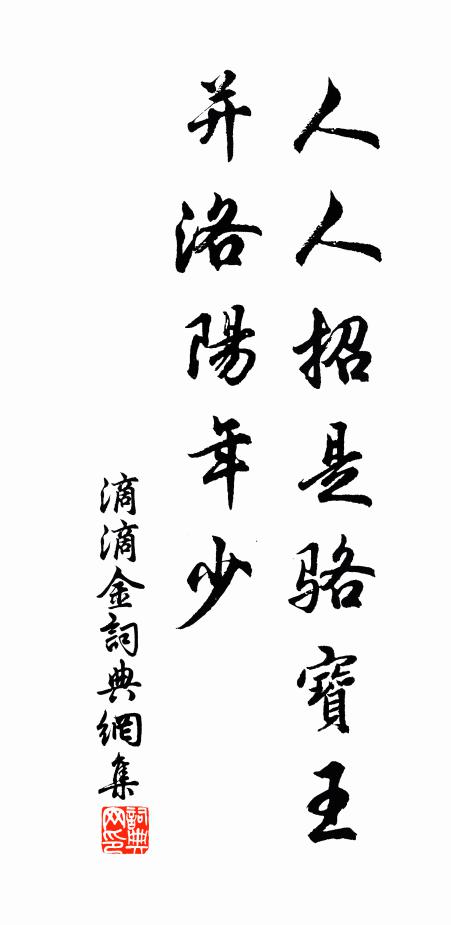 人人招是骆寶王
并洛陽年少
滴滴金詞典網集
詞典网印